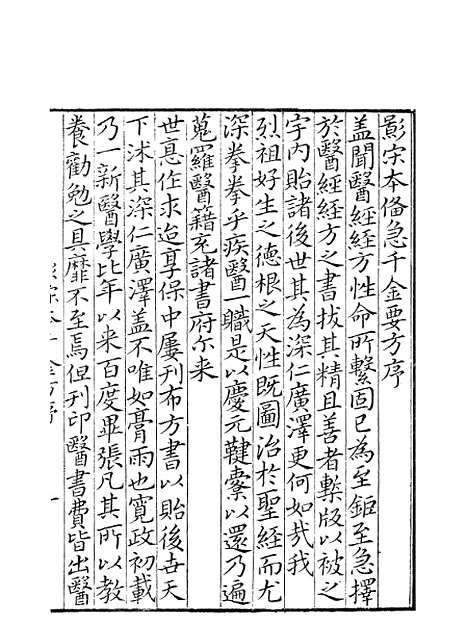 影宋本備急千金要方序
蓋聞醫經經方性命所繫固已為至鉅至急擇
於醫經經方之書拔其精且善者槧版以被之
宇內貽諸後世其為深仁廣澤更何如哉我
烈祖好生之德根之天性既圖治於聖經而尤
深拳拳乎疾醫一職是以慶元鞬櫜以還乃遍
蒐羅醫籍充諸書府尔来
世悳作求迨享保中屢刊布方書以貽後去天
下沭其深仁廣澤蓋不唯如膏雨也寬政初載
乃一新醫學比年以来百度畢張凡其所以教
養勸勉之具靡不至焉但刊印醫書費皆出醫